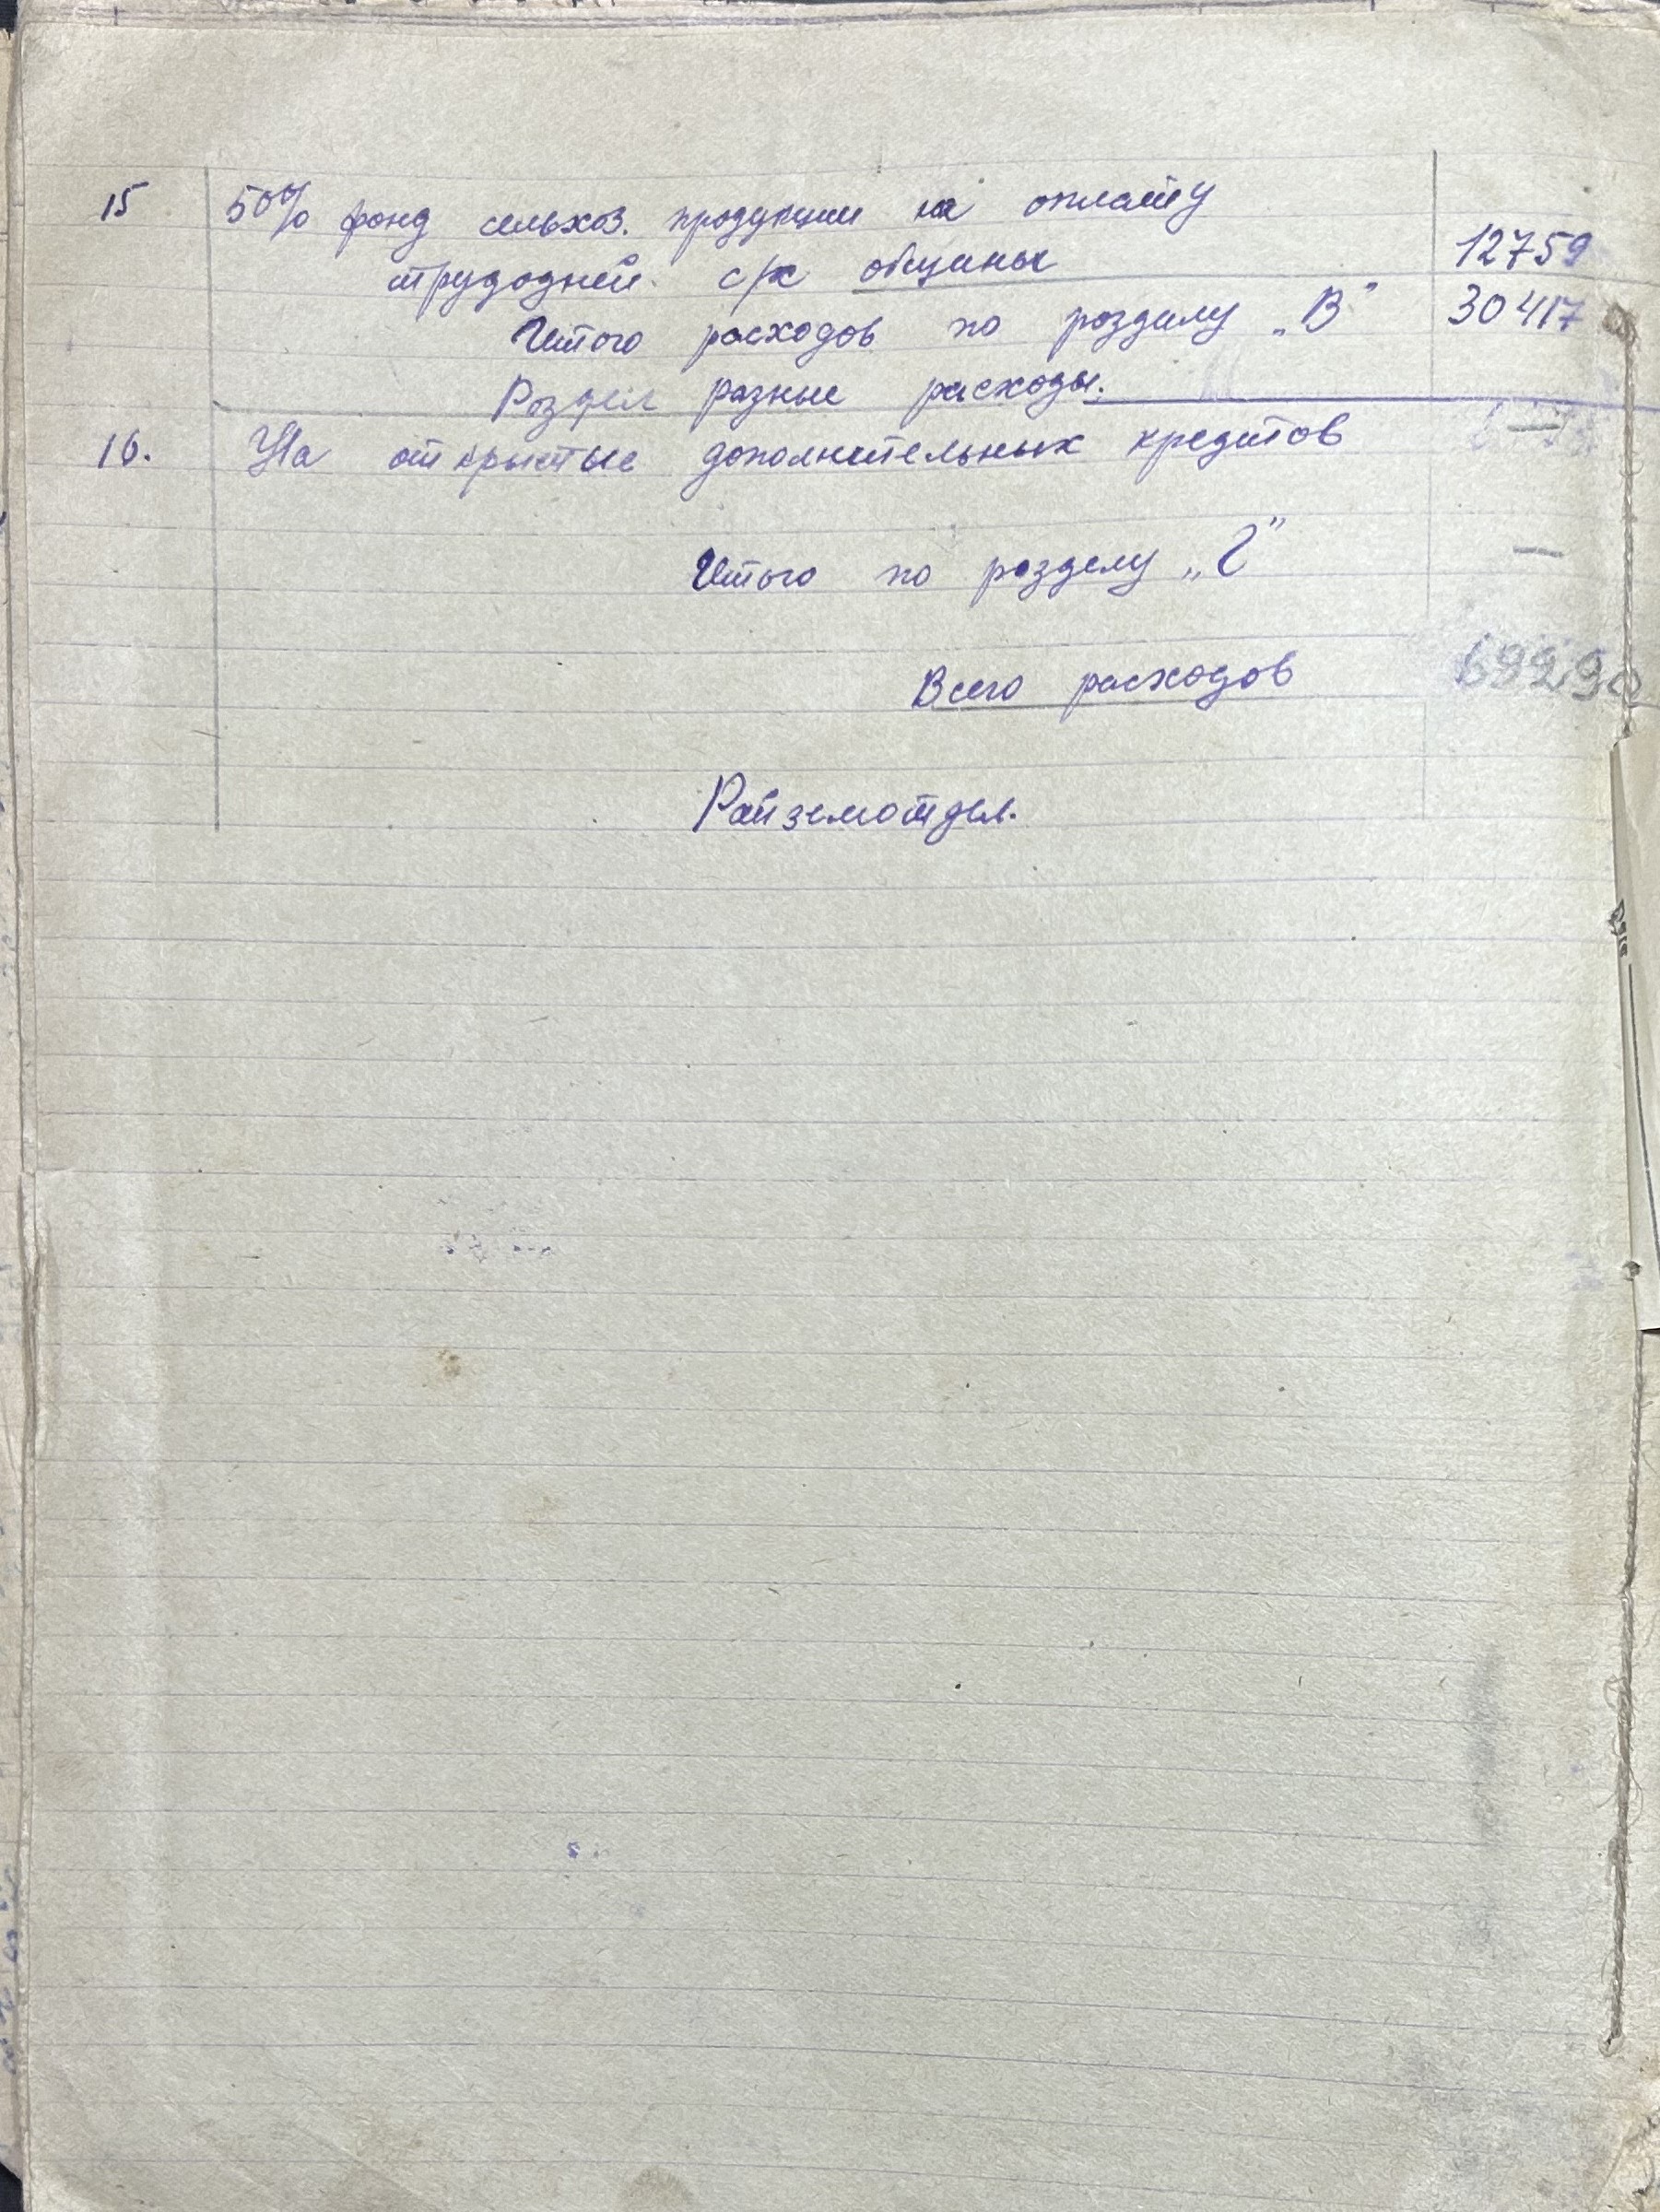 15 50% фонд сельхоз. продукции на оплату
трудодней с/х общины 12759
Итого расходов по розделу „В" 30417
Роздел разные расходы.
16. На открытые дополнительных кредитов —
Итого по розделу „Г" —
Всего расходов 69929
Райземотдел.